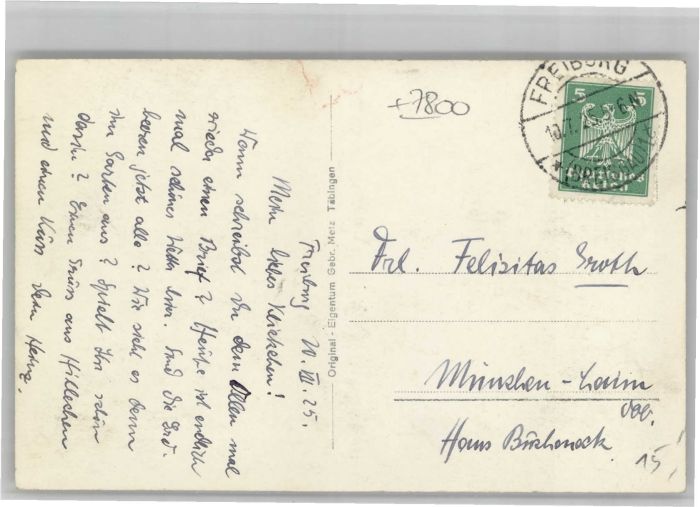 Freiburg 10. VII. 25.
Mein liebes Kleinchen!
Wann schreibst Du dem Ollen mal
wieder einen Brief? Heute ist endlich
mal schönes Wetter hier. Sind die Erd-
beeren jetzt alle? Wie sieht es denn
im Garten aus? Spielt Ihr schön
darin? Einen Gruss aus
und einen Kuss Dein Heinz.
Original - Eigentum Gebr. Metz Tübingen
+7800
FREIBURG
(BREISGAU)
5 5
Frl. Felizitas Groth
München-Laim
Haus
15,